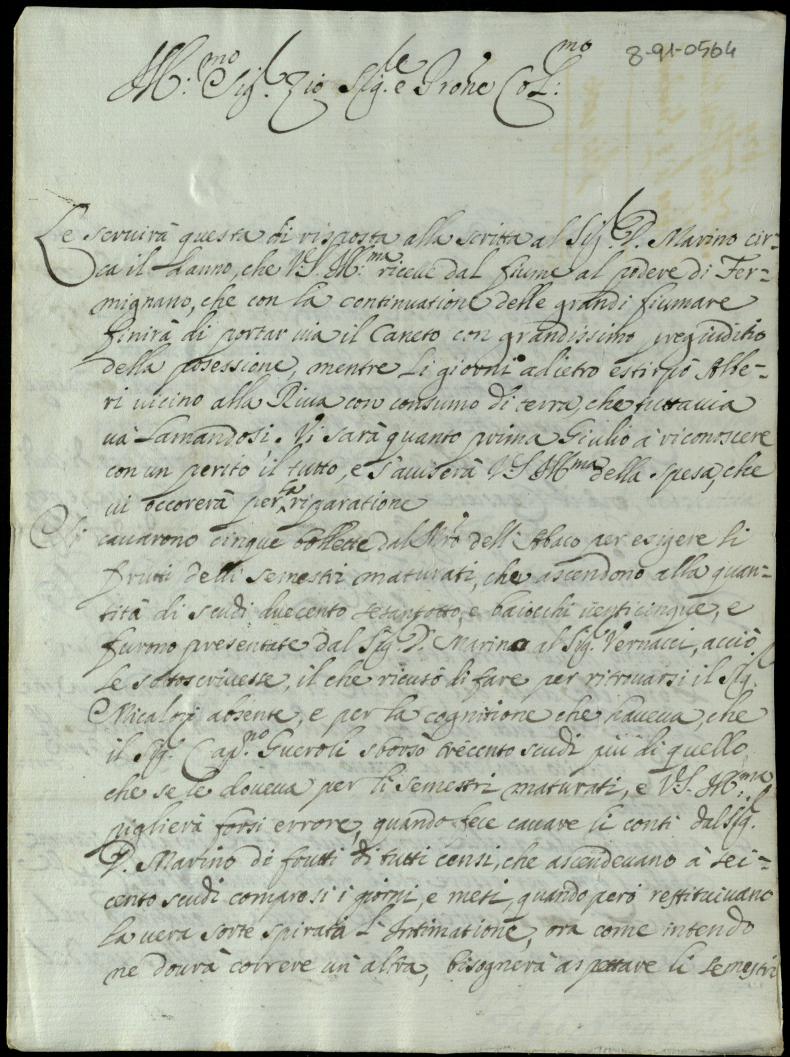 8-91-0564
Ill:mo Sig.r Zio Sig.le e Prone Col:mo
Le seruirà questa di risposta alla scritta al Sig.r D. Marino cir=
ca il danno, che V.S. Ill:ma riceue dal fiume al podere di Fer=
mignano, che con la continuatione delle grandi fiumare
finirà di portar uia il Caneto con grandissimo pregiuditio
della possessione, mentre li giorni adietro estirpò Albe=
ri uicino alla Riua con consumo di terra, che tuttauia
uà lamandosi. Vi sarà quanto prima Giulio à riconoscere
con un perito il tutto, e s'auiserà V.S. Ill.ma della spesa, che
ui occorerà per la riparatione
Si cauarono cinque bollette dal libro dell'Abaco per esigere li
frutti delli semestri maturati, che ascendono alla quan=
tità di scudi duecento setantotto, e baiocchi uenticinque, e
furono presentate dal Sig. D. Marino al Sig. Vernacci, acciò
le sottoscriuesse, il che ricusò di fare per ritrouarsi il Sig.r
Micalori absente, e per la cognitione che haueua, che
il Sig. Cap.no Gueroli sborsò trecento scudi più di quello,
che se le doueua per li semestri maturati, e V.S. Ill:ma
piglierà forsi errore, quando fece cauare li conti dal Sig.r
D. Marino di frutti di tutti censi, che ascendeuano à sei=
cento scudi comprosi i giorni, e mesi, quando però restituiuano
la uera sorte spirata l'Intimatione, ora come intendo
ne dourà correre un'altra, bisognerà aspettare li semestri